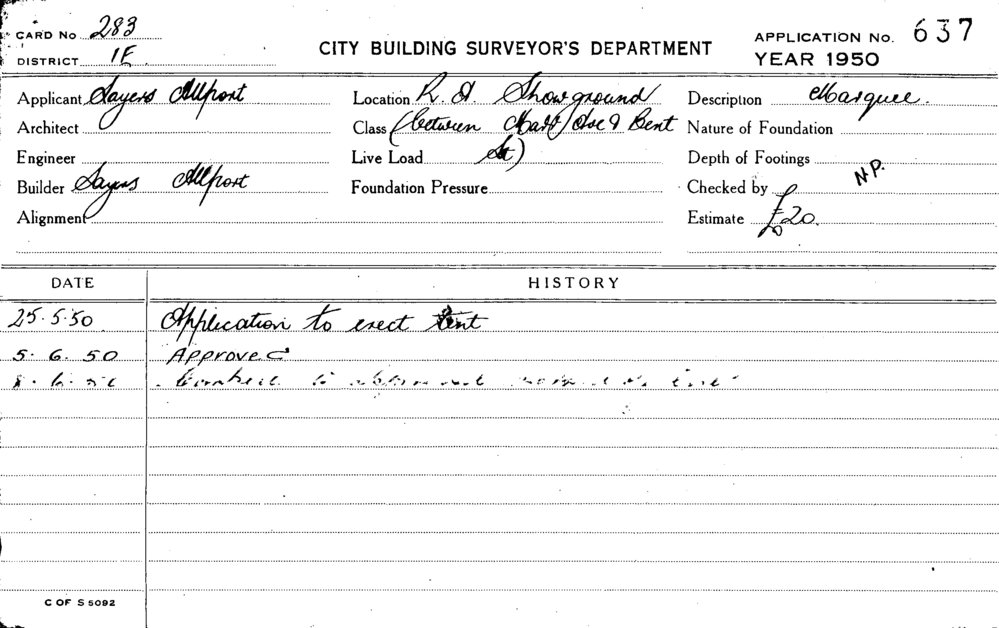 CARD No 283
DISTRICT 1E
CITY BUILDING SURVEYOR'S DEPARTMENT
APPLICATION No. 637
YEAR 1950
Applicant Sayers Allport
Architect
Engineer
Builder Sayers Allport
Alignment
Location R. A Showground
Class (between Mart/Ave & Bent
Live Load St)
Foundation Pressure
Description Marquee.
Nature of Foundation
Depth of Footings
Checked by N.P.
Estimate £20.
DATE HISTORY
25.5.50 Application to erect tent
5. 6. 50 Approved
C OF S 5092